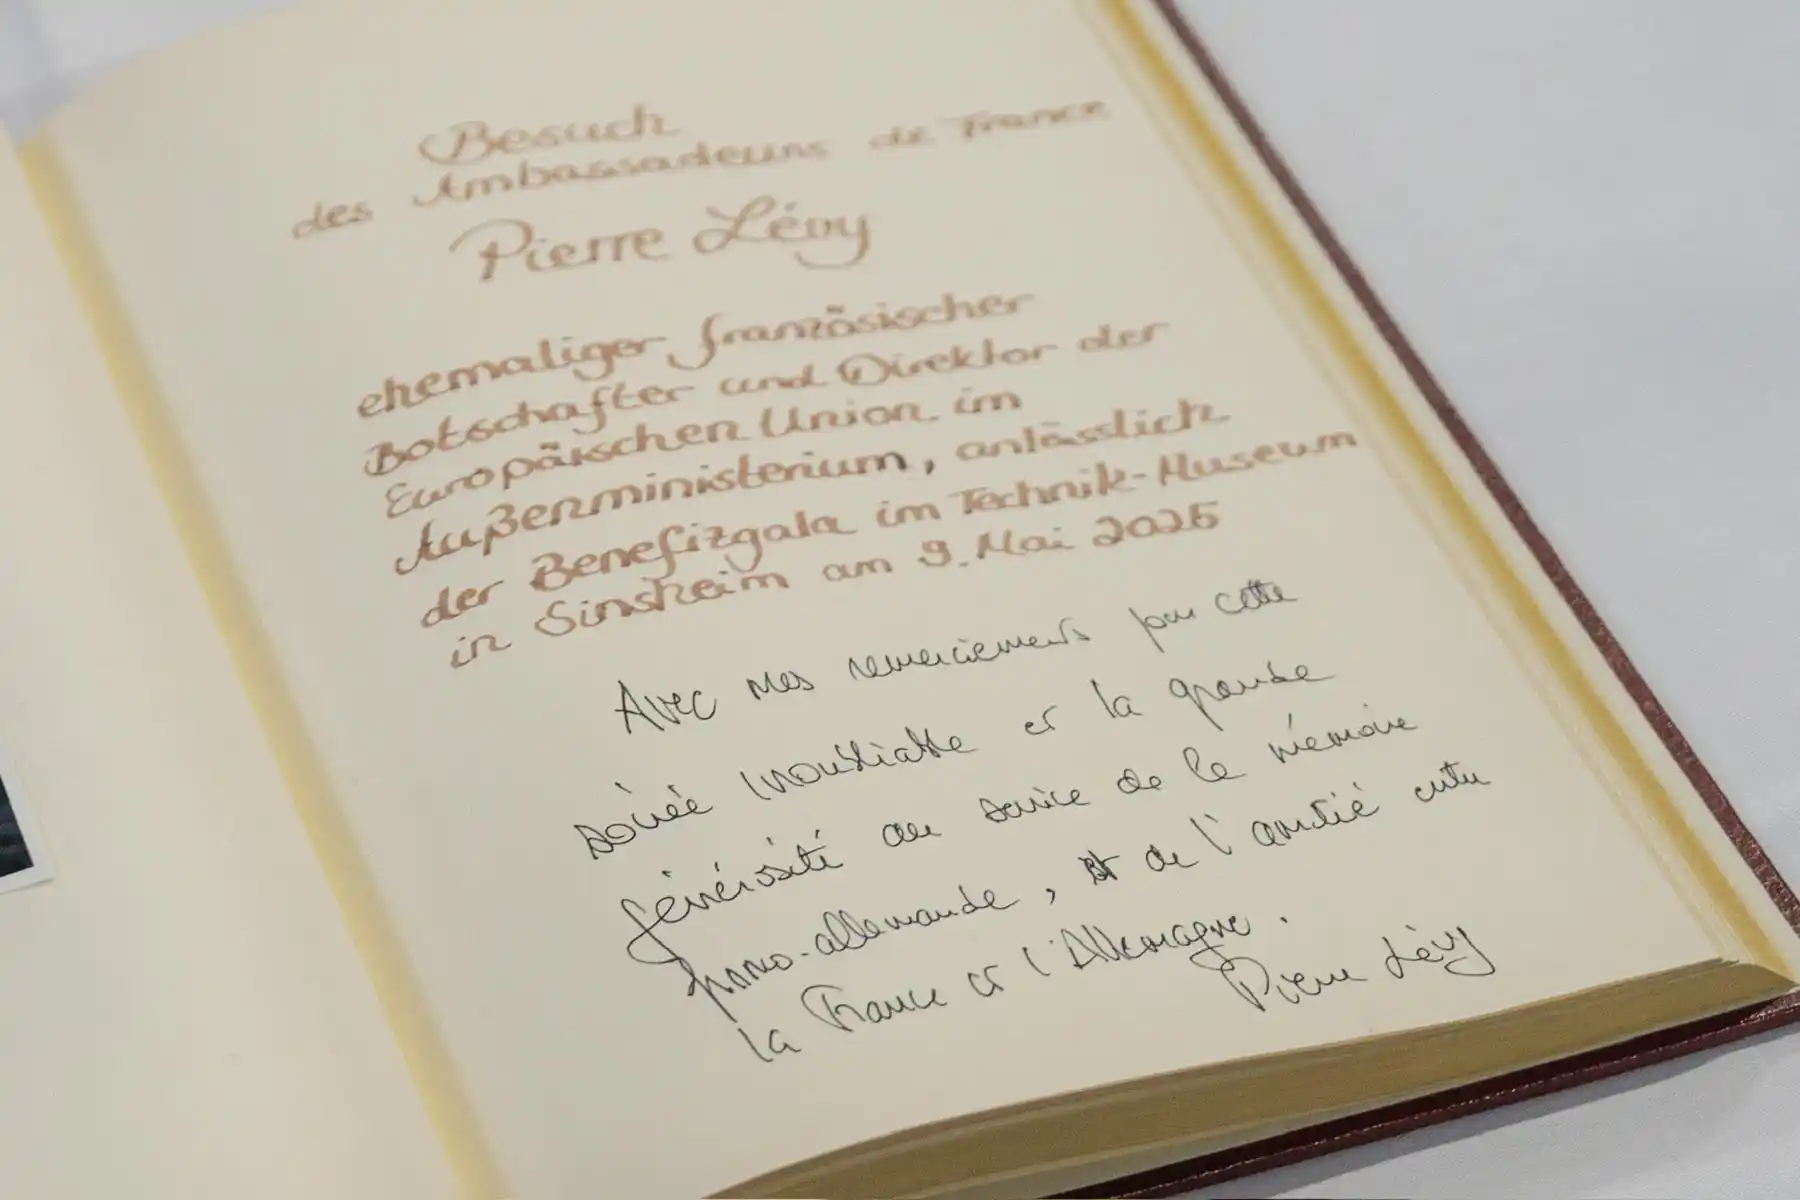 Besuch
des Ambassadeurs de France
Pierre Lévy
ehemaliger französischer
Botschafter und Direktor der
Europäischen Union im
Außenministerium, anlässlich
der Benefizgala im Technik-Museum
in Sinsheim am 9. Mai 2025
Avec mes remerciements pour cette
soirée inoubliable et la grande
générosité au service de la mémoire
franco-allemande, et de l'amitié entre
la France et l'Allemagne.
Pierre Lévy